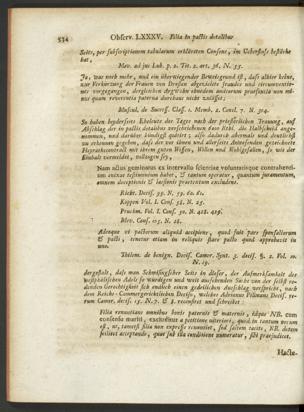 534 Observ. LXXXV. Filia in pactis dotalibus
Seits, per subscriptionem tabularum erklärten Consens, im Ueberfluß bestücke
hat,
Mev. ad jus Lub. p. 2. Tit. 2. art. 36. N. 55.
Ja, was noch mehr, und ein überwiegender Beweisgrund ist, daß allhier keine,
zur Verkürzung der Frauen von Droste abgezielte fraudes und circumventio-
nes vorgegangen, dergleichen Argwohn ohnedem amitarum praesentia von mi-
nus quam reverentia paterna durchaus nicht zuläßet;
Mascul. de Szurpf. Class. 1. Memb. 2. Concl. 7. N. 304.
So haben beyderseits Eheleute der Tages nach der priesterlichen Trauung, auf
Abschlag der in pactis dotalibus verschriebenen 6000 Rthl. die Halbscheid ange-
nommen, und darüber bündigst quitirt; also dadurch abermals und deutlichst
zu erkennen gegeben, daß der vor ihnen und allerseits Anwesenden gezeichnete
Heyrathscontrakt mit ihrem guten Wissen, Willen und Wohlgefallen, so wie der
Einhalt vermeldet, vollzogen sey,
Nam actus geminatus ex intervallo scienriae voluntatisque contrahendi-
um enixae testimonium habet, & tantum operatur, quantum juramentum,
omnem deceptionis & laesionis praetentum excludens.
Richt. Decis. 59. N. 59. 60. 61.
Koppen Vol. I. Conf. 58. N. 25.
Pruckm. Vol. I. Conf. 30. N. 428. 429.
Mev. Conf. 105. N. 28.
Adeoque ex pactorum aliquid accipiens, quod fuit pars sponsalitiorum
& pacti, tenetur etiam in reliquis stare pacto quod approbavit in
uno.
Thülem. de benign. Decis. Camer. Synt. 3. decis. 9. 2. Vol. 10.
N. 19.
dergestalt, daß man Schmisingscher Seits in dieser, der Aufmerksamkeit des
westphälischen Adels so würdigen und weit aussehenden Sache von der selbst re-
denden Gerechtigkeit sich endlich einen gedeilichen Ausschlag verspricht, nach
dem Reichs-Commergerichtlichen Decisio, welcher Adrianus Pülmann Decis. ve-
rum Camer. decis. 15. N. 7. & 8. recensiret und schreibet:
Filia renuntians omnibus bonis paternis & maternis, idque NB. cum
consensu mariti, excluditur a petitione ulteriori, quod in tantum verum
est, ut, tametsi filia non expresse renuntiet, sed saltem tacite, NB. dotem
scilicet acceptando, quae sub illa conditione numeratur, sibi praejudicet.
Hacte-